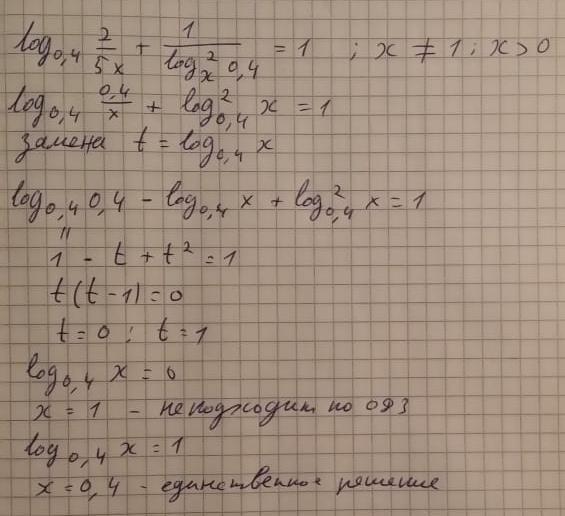 log₀,₄ 2/(5x) + 1/(logₓ² 0,4) = 1 ; x ≠ 1 ; x > 0
log₀,₄ 0,4/x + log²₀,₄ x = 1
замена t = log₀,₄ x
log₀,₄ 0,4 − log₀,₄ x + log²₀,₄ x = 1
"
1 − t + t² = 1
t(t − 1) = 0
t = 0 ; t = 1
log₀,₄ x = 0
x = 1 – не подходит по ОДЗ
log₀,₄ x = 1
x = 0,4 – единственное решение